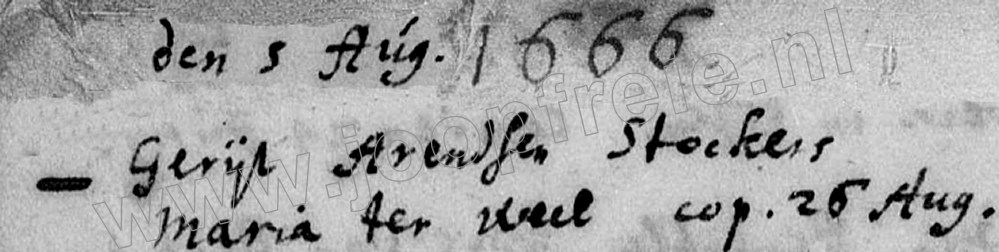 den 5 Aug. 1666
- Gerijt Arendsen Stockers
Maria ter cop. 26 Aug.
www.joopfrele.nl